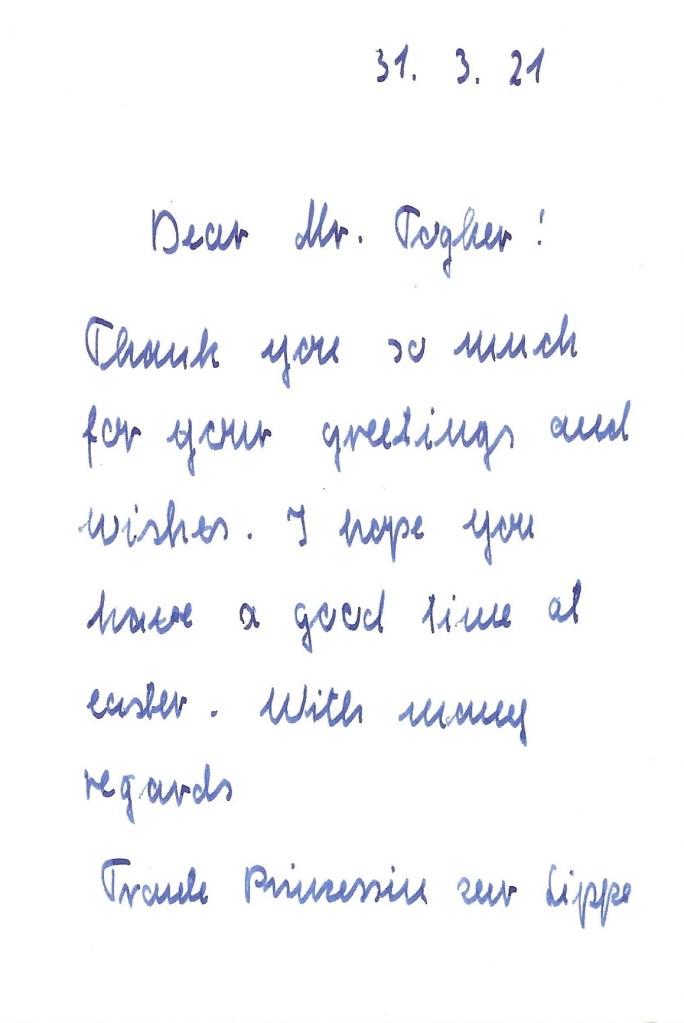 31. 3. 21
Dear Mr. Togher!
Thank you so much
for your greetings and
wishes. I hope you
have a good time at
easter. With many
regards
Traute Prinzessin zur Lippe